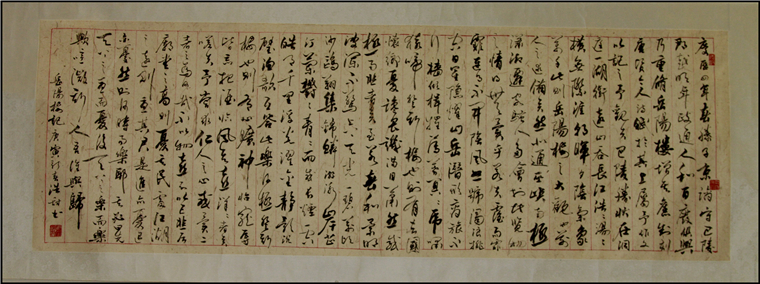 慶曆四年春滕子京謫守巴陵
郡越明年政通人和百廢俱興
乃重修岳陽樓增其舊制刻
唐賢今人詩賦於其上屬予作文
以記之予觀夫巴陵勝狀在洞
庭一湖銜遠山吞長江浩浩湯湯
橫無際涯朝暉夕陰氣象
萬千此則岳陽樓之大觀也前
人之述備矣然則北通巫峽南極
瀟湘遷客騷人多會於此覽物
之情得無異乎若夫霪雨霏
霏連月不開陰風怒號濁浪排
空日星隱曜山岳潛形商旅不
行檣傾楫摧薄暮冥冥虎嘯
猿啼登斯樓也則有去國
懷鄉憂讒畏譏滿目蕭然感
極而悲者矣至若春和景明
波瀾不驚上下天光一碧萬頃
沙鷗翔集錦鱗游泳岸芷
汀蘭郁郁青青而或長煙一空
皓月千里浮光躍金靜影沉
璧漁歌互答此樂何極登斯
樓也則有心曠神怡寵辱
皆忘把酒臨風其喜洋洋者矣
嗟夫予嘗求古仁人之心或異二
者之為何哉不以物喜不以己悲居
廟堂之高則憂其民處江湖
之遠則憂其君是進亦憂退
亦憂然則何時而樂耶其必曰先
天下之憂而憂後天下之樂而樂
歟噫微斯人吾誰與歸
岳陽樓記庚寅書